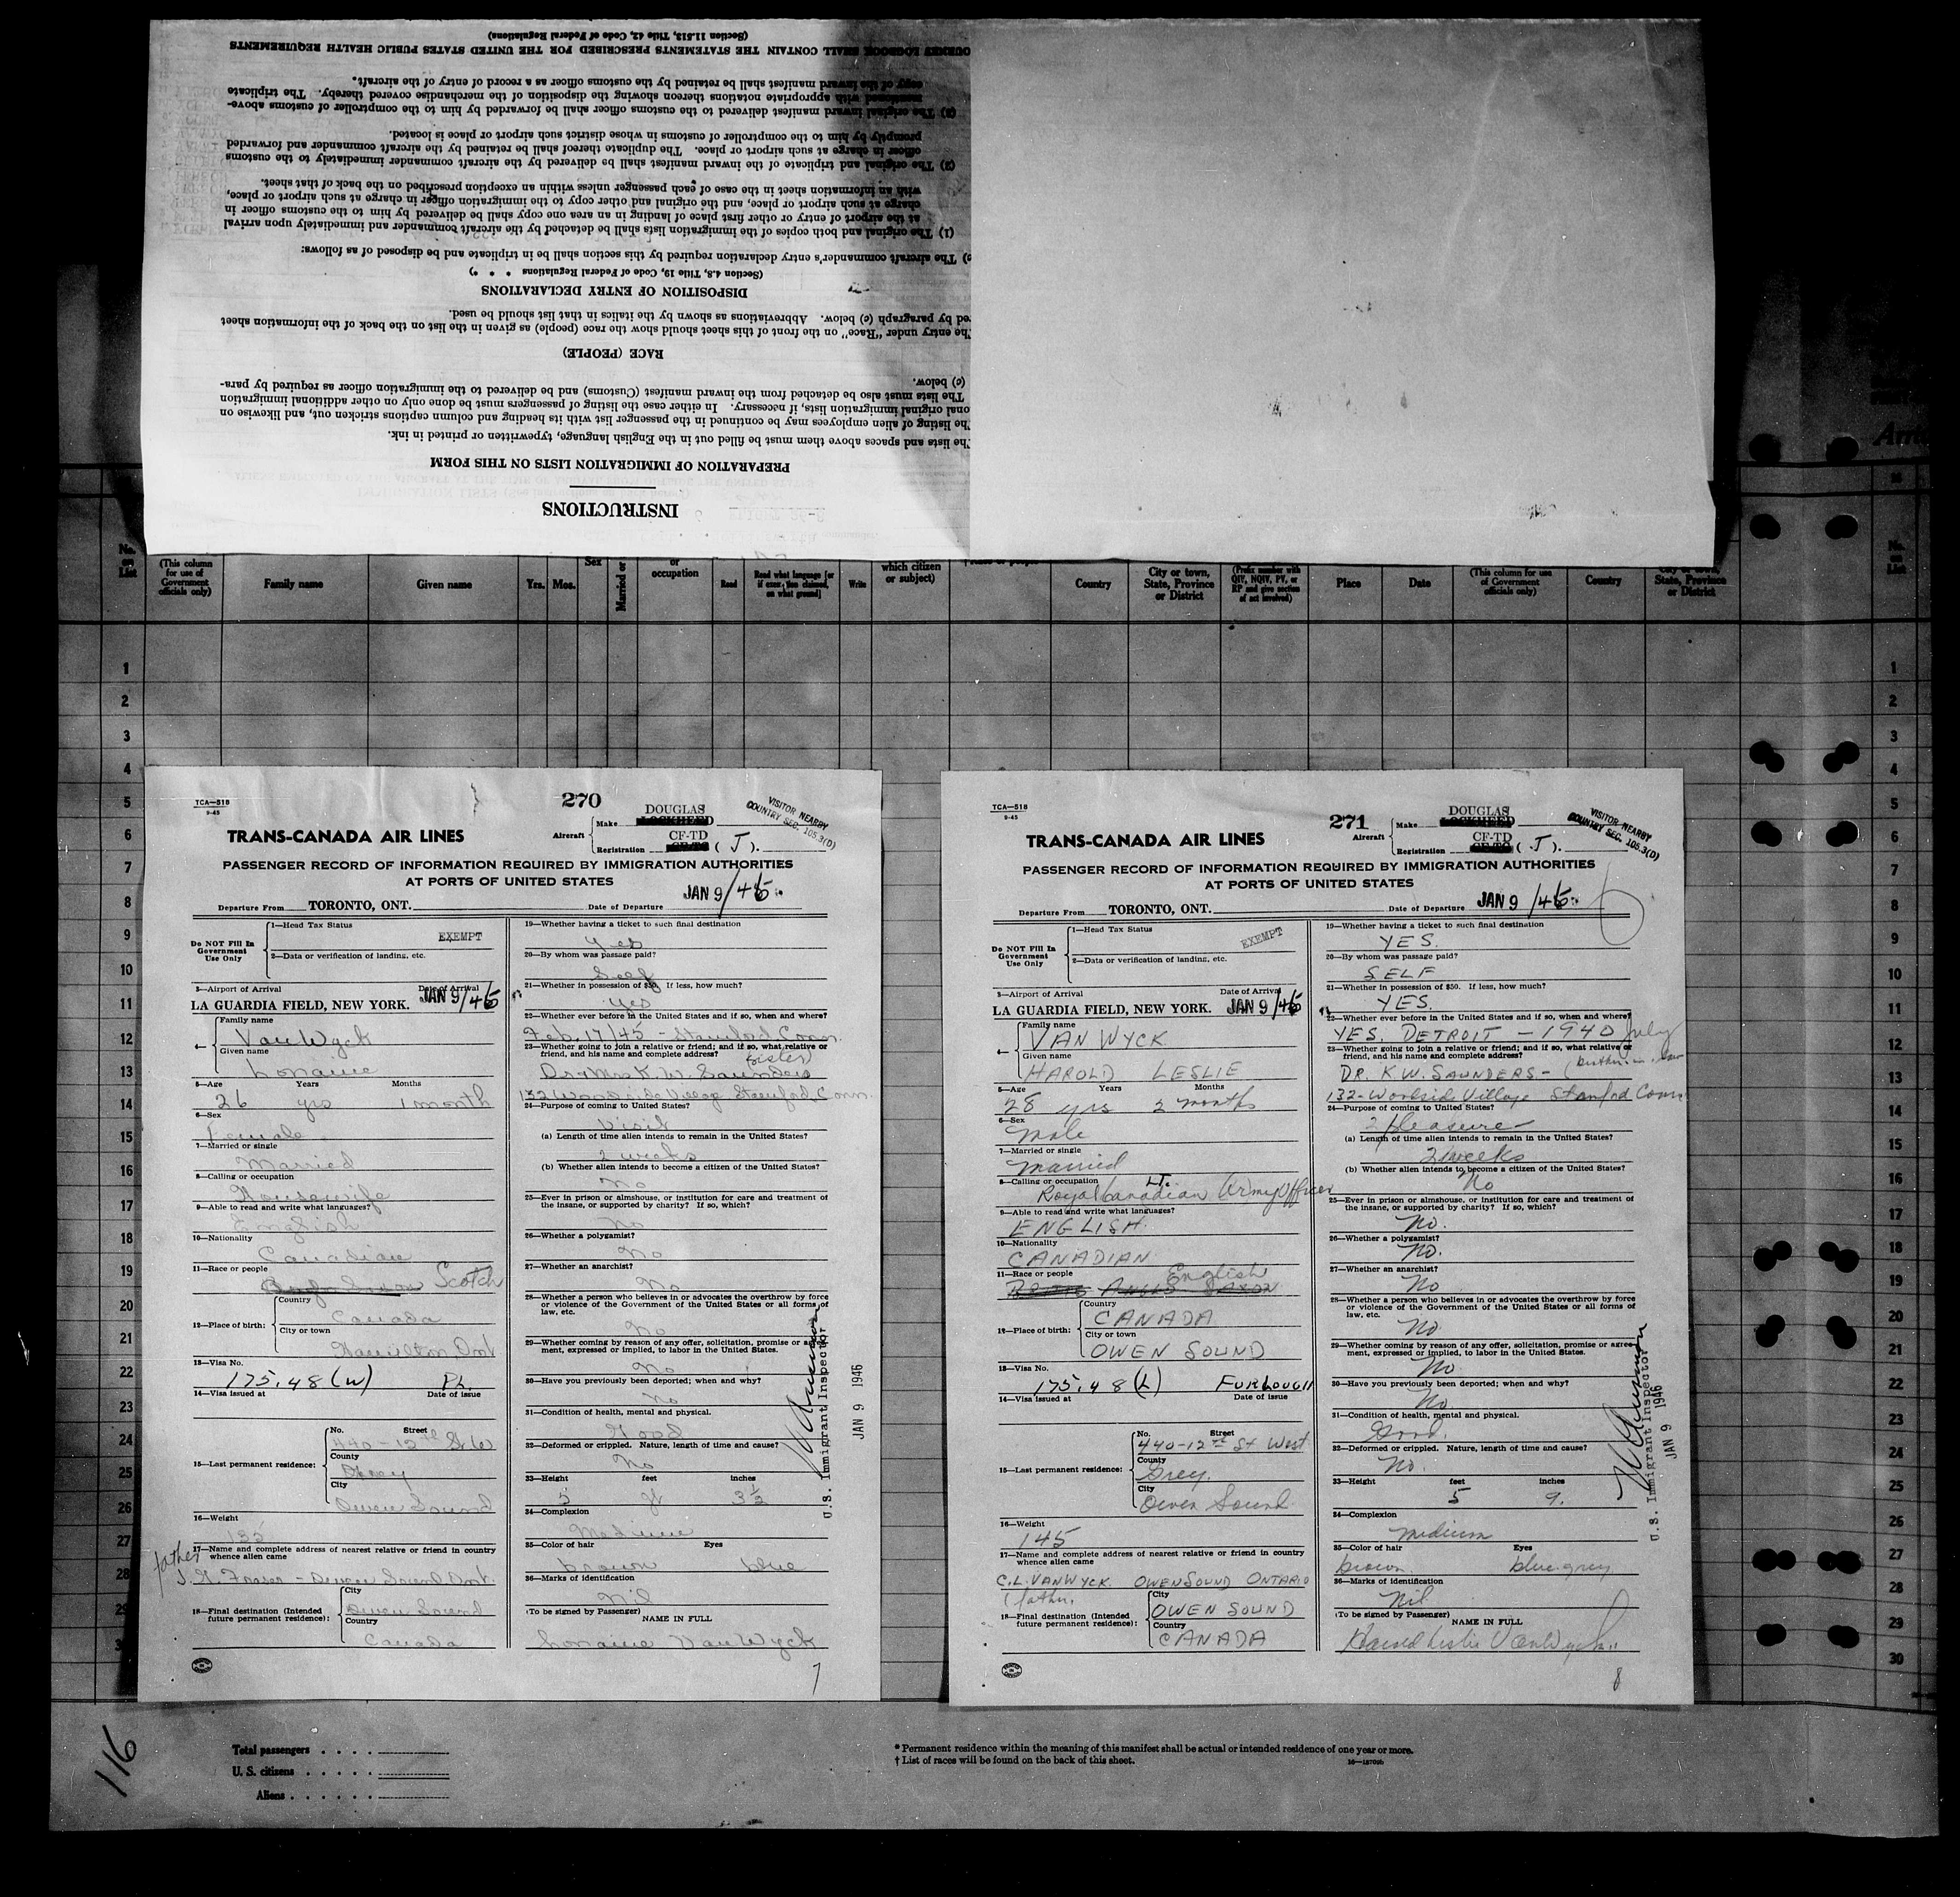 INSTRUCTIONS
PREPARATION OF IMMIGRATION LISTS ON THIS FORM
The lists and spaces above them must be filled out in the English language, typewritten or printed in ink.
The listing of alien employees may be continued in the passenger list with its heading and column captions stricken out, and likewise on
onal original immigration lists, if necessary. In either case the listing of passengers must be done only on other additional immigration
The lists must also be detached from the inward manifest (Customs) and be delivered to the immigration officer as required by para-
(c) below.
RACE (PEOPLE)
The entry under "Race" on the front of this sheet should show the race (people) as given in the list on the back of the information sheet
ed by paragraph (c) below. Abbreviations as shown by the italics in that list should be used.
DISPOSITION OF ENTRY DECLARATIONS
(Section 4.8, Title 19, Code of Federal Regulations * * *)
c) The aircraft commander's entry declaration required by this section shall be in triplicate and be disposed of as follows:
(1) The original and both copies of the immigration lists shall be detached by the aircraft commander and immediately upon arrival
at the airport of entry or other first place of landing in an area one copy shall be delivered by him to the customs officer in
charge at such airport or place, and the original and other copy to the immigration officer in charge at such airport or place,
with an information sheet in the case of each passenger unless within an exception prescribed on the back of that sheet.
(2) The original and triplicate of the inward manifest shall be delivered by the aircraft commander immediately to the customs
officer in charge at such airport or place. The duplicate thereof shall be retained by the aircraft commander and forwarded
promptly by him to the comptroller of customs in whose district such airport or place is located.
(3) The original inward manifest delivered to the customs officer shall be forwarded by him to the comptroller of customs above-
mentioned with appropriate notations thereon showing the disposition of the merchandise covered thereby. The triplicate
copy of the inward manifest shall be retained by the customs officer as a record of entry of the aircraft.
OURNEY LOGBOOK SHALL CONTAIN THE STATEMENTS PRESCRIBED FOR THE UNITED STATES PUBLIC HEALTH REQUIREMENTS
(Section 11.513, Title 42, Code of Federal Regulations)
No. on List
(This column for use of Government officials only)
Family name
Given name
Yrs.
Mos.
Sex
Married or
or occupation
Read
Read what language [or if exemption claimed, on what ground]
Write
which citizen or subject)
Country
City or town, State, Province or District
(Prefix number with QIV, NQIV, PV, or RP and give section of act involved)
Place
Date
(This column for use of Government officials only)
Country
State, Province or District
No. on List
1
2
3
4
5
6
7
8
9
10
11
12
13
14
15
16
17
18
19
20
21
22
23
24
25
26
27
28
29
TCA—518
9-45
270
DOUGLAS
VISITOR NEARBY
COUNTRY SEC. 105.3(D)
TRANS-CANADA AIR LINES
Aircraft
Make LOCKHEED
CF-TD
Registration CF-TC (J).
PASSENGER RECORD OF INFORMATION REQUIRED BY IMMIGRATION AUTHORITIES
AT PORTS OF UNITED STATES
Departure From TORONTO, ONT. Date of Departure JAN 9/46
Do NOT Fill In Government Use Only
1—Head Tax Status
EXEMPT
2—Data or verification of landing, etc.
3—Airport of Arrival
Date of Arrival
LA GUARDIA FIELD, NEW YORK. JAN 9/46
4—
Family name
Van Wyck
Given name
Lorraine
5—Age Years Months
26 yrs 1 month
6—Sex
Female
7—Married or single
Married
8—Calling or occupation
Housewife
9—Able to read and write what languages?
English
10—Nationality
Canadian
11—Race or people
Scotch
12—Place of birth:
Country
Canada
City or town
Hamilton, Ont
13—Visa No.
175.48 (W) Pl.
14—Visa issued at Date of issue
15—Last permanent residence:
No. Street
440-12th St. W
County
Grey
City
Owen Sound
16—Weight
135
17—Name and complete address of nearest relative or friend in country
whence alien came
father
Fraser - Owen Sound Ont.
18—Final destination (Intended
future permanent residence):
City
Owen Sound
Country
Canada
19—Whether having a ticket to such final destination
Yes
20—By whom was passage paid?
Self
21—Whether in possession of $50. If less, how much?
Yes
22—Whether ever before in the United States and if so, when and where?
Feb. 17/45 - Stamford, Conn.
23—Whether going to join a relative or friend; and if so, what relative or
friend, and his name and complete address?
(sister)
Dr & Mrs K. W. Saunders
132 Woodside Village Stamford, Conn.
24—Purpose of coming to United States?
Visit
(a) Length of time alien intends to remain in the United States?
2 weeks
(b) Whether alien intends to become a citizen of the United States?
No
25—Ever in prison or almshouse, or institution for care and treatment of
the insane, or supported by charity? If so, which?
No
26—Whether a polygamist?
No
27—Whether an anarchist?
No
28—Whether a person who believes in or advocates the overthrow by force
or violence of the Government of the United States or all forms of
law, etc.
No
29—Whether coming by reason of any offer, solicitation, promise or agree-
ment, expressed or implied, to labor in the United States?
No
30—Have you previously been deported; when and why?
No
31—Condition of health, mental and physical.
Good
32—Deformed or crippled. Nature, length of time and cause?
No
33—Height feet inches
5 ft 3½
34—Complexion
Medium
35—Color of hair Eyes
brown blue
36—Marks of identification
Nil
(To be signed by Passenger) NAME IN FULL
Lorraine Van Wyck
7
U.S. Immigrant Inspector
JAN 9 1946
TCA—518
9-45
271
DOUGLAS
VISITOR NEARBY
COUNTRY SEC. 105.3(D)
TRANS-CANADA AIR LINES
Aircraft
Make LOCKHEED
CF-TD
Registration CF-TC (J).
PASSENGER RECORD OF INFORMATION REQUIRED BY IMMIGRATION AUTHORITIES
AT PORTS OF UNITED STATES
Departure From TORONTO, ONT. Date of Departure JAN 9/46
Do NOT Fill In Government Use Only
1—Head Tax Status
EXEMPT
2—Data or verification of landing, etc.
3—Airport of Arrival
Date of Arrival
LA GUARDIA FIELD, NEW YORK. JAN 9/46
4—
Family name
VAN WYCK
Given name
HAROLD LESLIE
5—Age Years Months
28 yrs 2 months
6—Sex
Male
7—Married or single
Married
8—Calling or occupation
Lt.
Royal Canadian Army Officer
9—Able to read and write what languages?
ENGLISH.
10—Nationality
CANADIAN
11—Race or people
English
ANGLO SAXON
12—Place of birth:
Country
CANADA
City or town
OWEN SOUND
13—Visa No.
175.48 (L) FURLOUGH
14—Visa issued at Date of issue
15—Last permanent residence:
No. Street
440-12th St West
County
Grey.
City
Owen Sound
16—Weight
145
17—Name and complete address of nearest relative or friend in country
whence alien came
C.L. VAN WYCK. OWEN SOUND ONTARIO
(father.
18—Final destination (Intended
future permanent residence):
City
OWEN SOUND
Country
CANADA
19—Whether having a ticket to such final destination
YES.
20—By whom was passage paid?
SELF
21—Whether in possession of $50. If less, how much?
YES.
22—Whether ever before in the United States and if so, when and where?
YES. DETROIT - 1940 July
23—Whether going to join a relative or friend; and if so, what relative or
friend, and his name and complete address?
(brother in law
DR. K.W. SAUNDERS-
132- Woodside Village Stamford Conn
24—Purpose of coming to United States?
Pleasure
(a) Length of time alien intends to remain in the United States?
2 weeks
(b) Whether alien intends to become a citizen of the United States?
No
25—Ever in prison or almshouse, or institution for care and treatment of
the insane, or supported by charity? If so, which?
No.
26—Whether a polygamist?
No.
27—Whether an anarchist?
No
28—Whether a person who believes in or advocates the overthrow by force
or violence of the Government of the United States or all forms of
law, etc.
No
29—Whether coming by reason of any offer, solicitation, promise or agree-
ment, expressed or implied, to labor in the United States?
No
30—Have you previously been deported; when and why?
No
31—Condition of health, mental and physical.
Good.
32—Deformed or crippled. Nature, length of time and cause?
No.
33—Height feet inches
5 9.
34—Complexion
medium
35—Color of hair Eyes
brown blue-grey
36—Marks of identification
Nil
(To be signed by Passenger) NAME IN FULL
Harold Leslie Van Wyck.
8
U.S. Immigrant Inspector
JAN 9 1946
1
2
3
4
5
6
7
8
9
10
11
12
13
14
15
16
17
18
19
20
21
22
23
24
25
26
27
28
29
30
116
Total passengers . . . .
U. S. citizens . . . . .
Aliens . . . . . .
* Permanent residence within the meaning of this manifest shall be actual or intended residence of one year or more.
† List of races will be found on the back of this sheet.